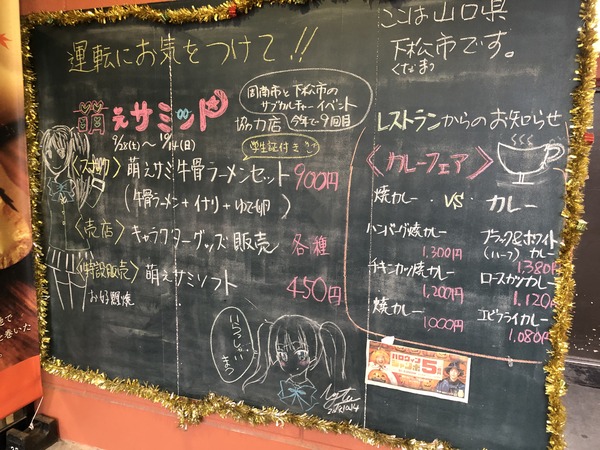 運転にお気をつけて!!
ここは山口県
下松市です。
くだまつ
萌えサミット
周南市と下松市の
サブカルチャーイベント
協力店 今年で9回目
(土)~ 10/14(日)
〈スナック〉萌えサミ牛骨ラーメンセット 900円
(牛骨ラーメン+イナリ+ゆで卵)
〈売店〉キャラクターグッズ販売 各種
〈特設販売〉萌えサミソフト 450円
いらっしゃいませ
レストランからのお知らせ
〈カレーフェア〉
焼カレー VS カレー
ハンバーグ焼カレー
1,300円
チキンカツ焼カレー
1,200円
焼カレー
1,000円
ブラック&ホワイト
(ハーフ)カレー
1,380円
ロースカツカレー
1,120円
エビフライカレー
1,080円
ハロウィン
ジャンボ
5億円